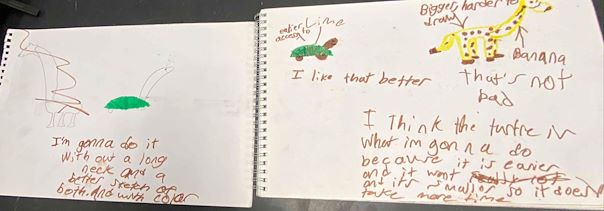 I'm gonna do it
with out a long
neck and a
better sketch of
both. And with color
easier
access to
Lime
I like that better
Bigger, harder to
draw
Banana
That's not
bad
I Think the turtle is
what im gonna do
because it is easier
and it want
and its smaller so it does
take more time